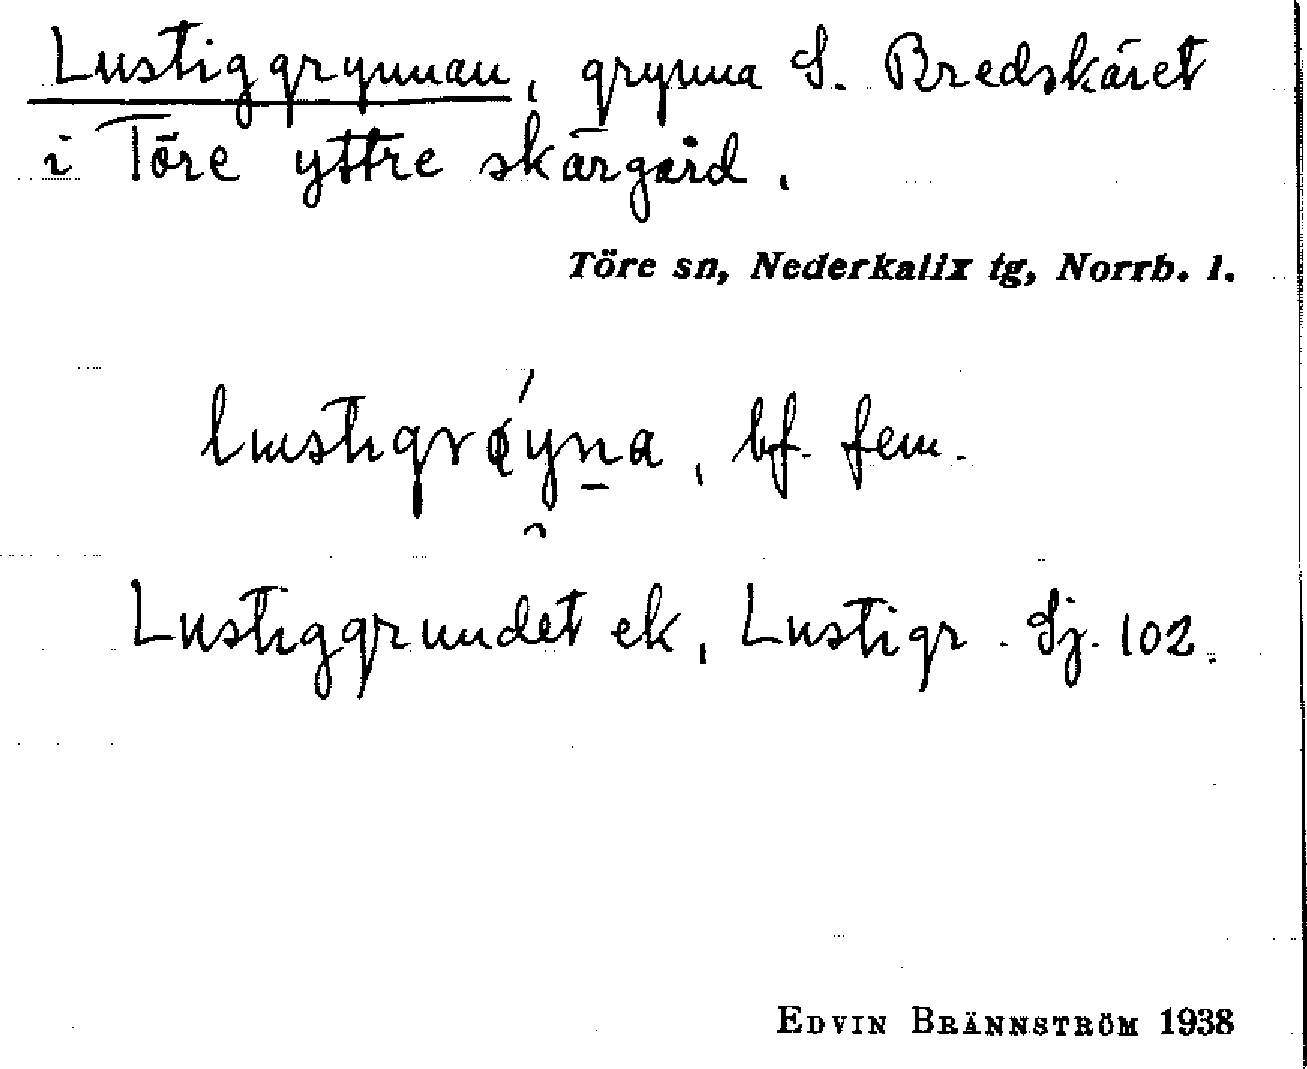 Lustiggrynnan, grynna S. Bredskäret
i Töre yttre skärgård.
Töre sn, Nederkalix tg, Norrb. l.
lustigrǿyn̲a, bf. fem.
Lustiggrundet ek, Lustigr. Sj. 102.
EDVIN BRÄNNSTRÖM 1938